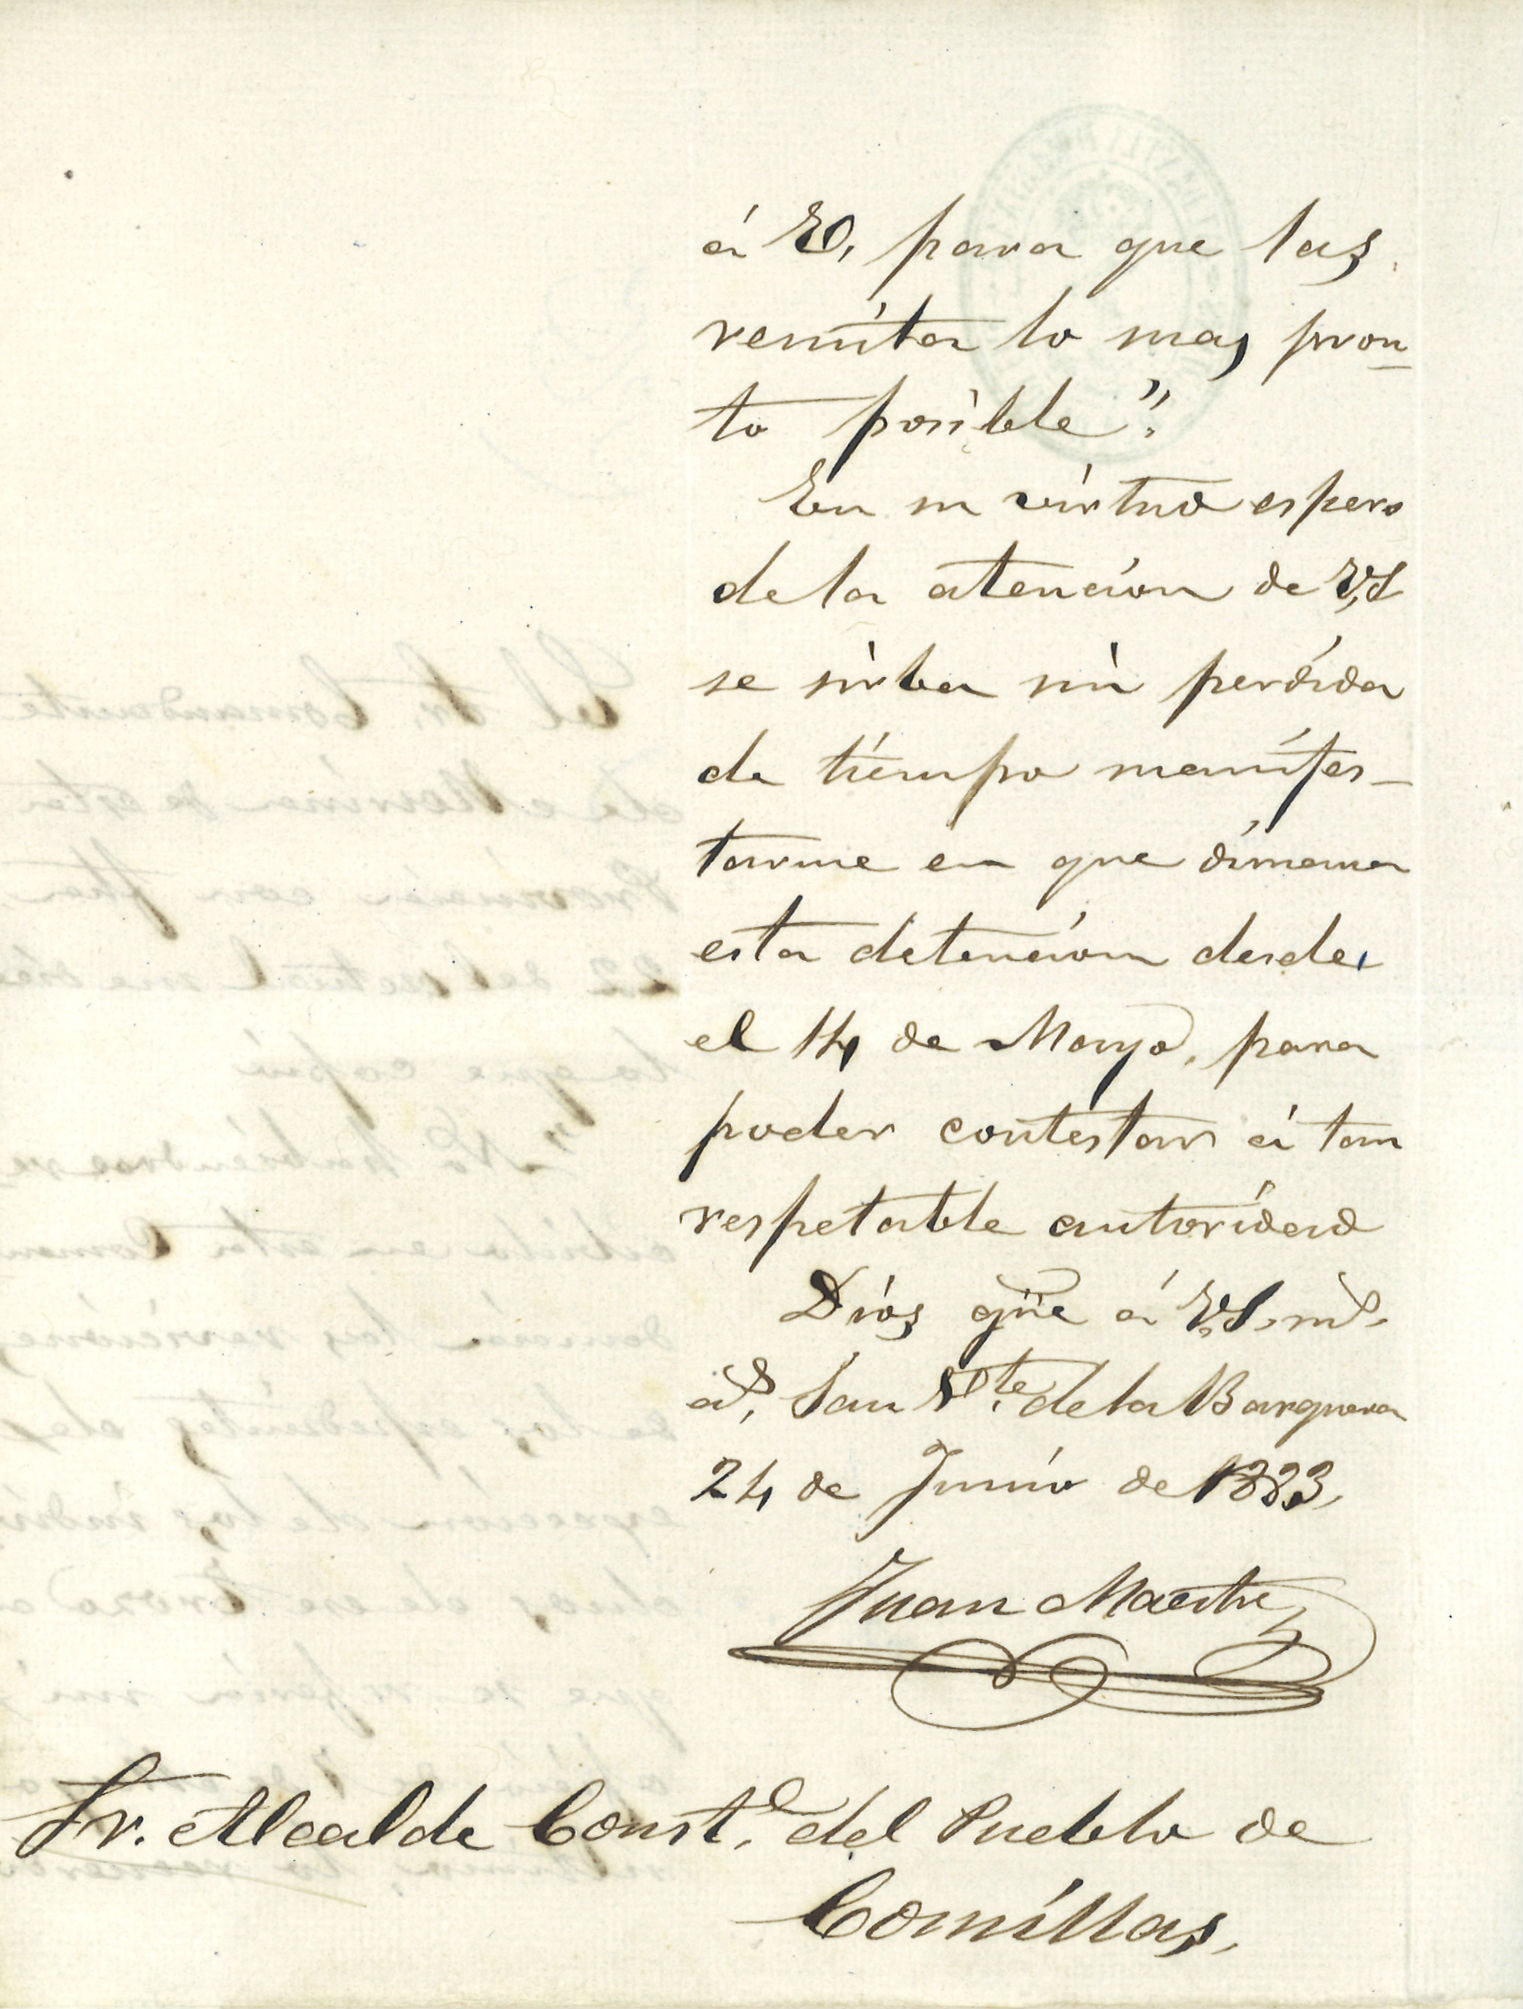 á V, para que las
remita lo mas pron-
to posible".
En su virtud espero
de la atención de V,S
se sirba sin perdída
de tiempo manifes-
tarme en que dimana
esta detención desde
el 14 de Mayo, para
poder contestar á tan
respetable autoridad
Dios gūe á V.S. mˢ.
aˢ, San Vᵗᵉ de la Barquera
24 de Junio de 1883,
Juan Maestre
Sr. Alcalde Constˡ. del Pueblo de
Comillas,